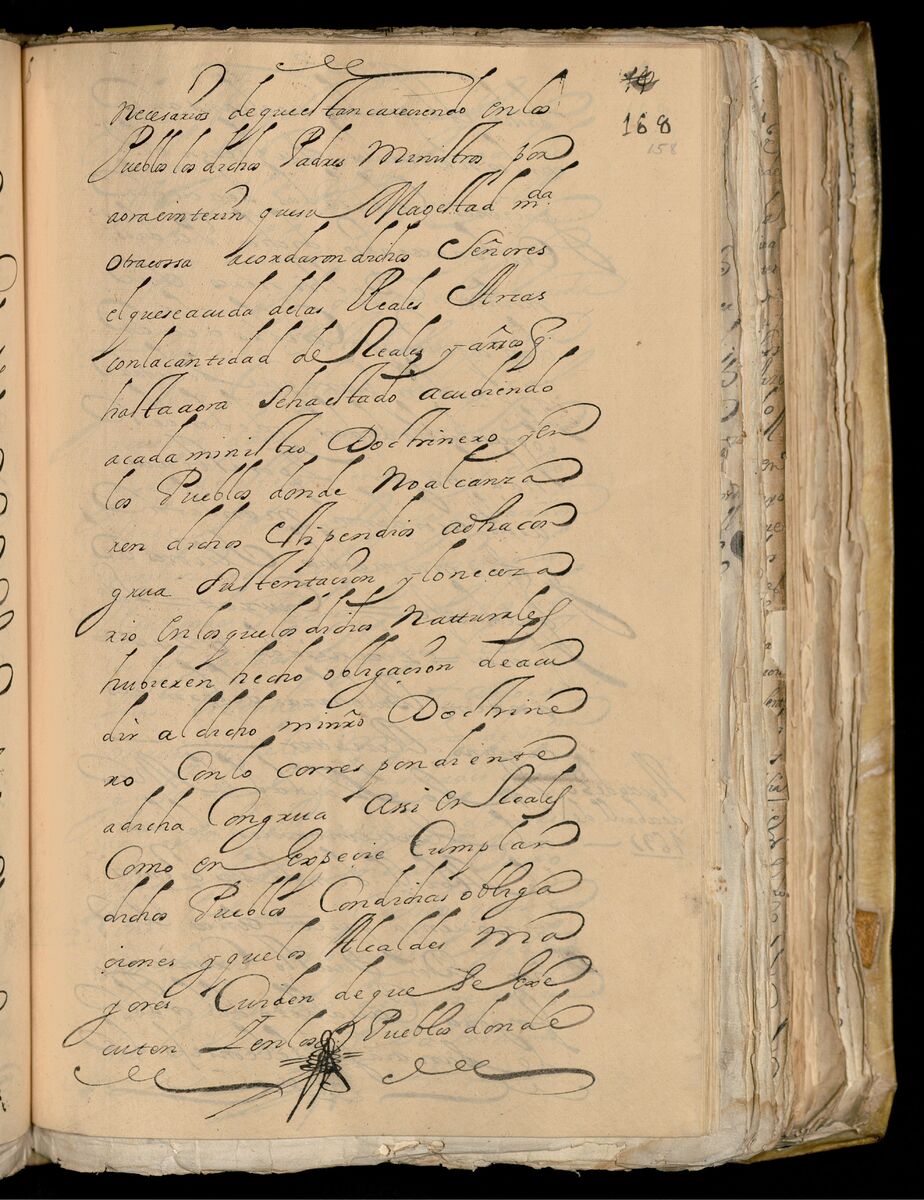 168
158
necesarios de que estan careciendo en los
Pueblos los dichos Padres Ministros por
aora einterin que su Magestad m.da
otra cossa acordaron dichos Señores
el que se acuda de las Reales Arcas
con la cantidad de Reales y
hasta aora se ha estado acudiendo
acada ministro Doctrinero y en
los Pueblos donde No alcanza
ren dichos stipendios adha con
grua sustentacion y lo necesa
rio en los que los dichos Natturales
hubieren hecho obligacion de acu
dir al dicho minro Doctrine
ro Con lo correspondiente
adicha Congrua Assi en Reales
Como en Expecie Cumplan
dichos Pueblos Con dichas obliga
ciones y que los Alcaldes Ma
yores Cuiden de que Se Exe
cuten Y en los Pueblos donde